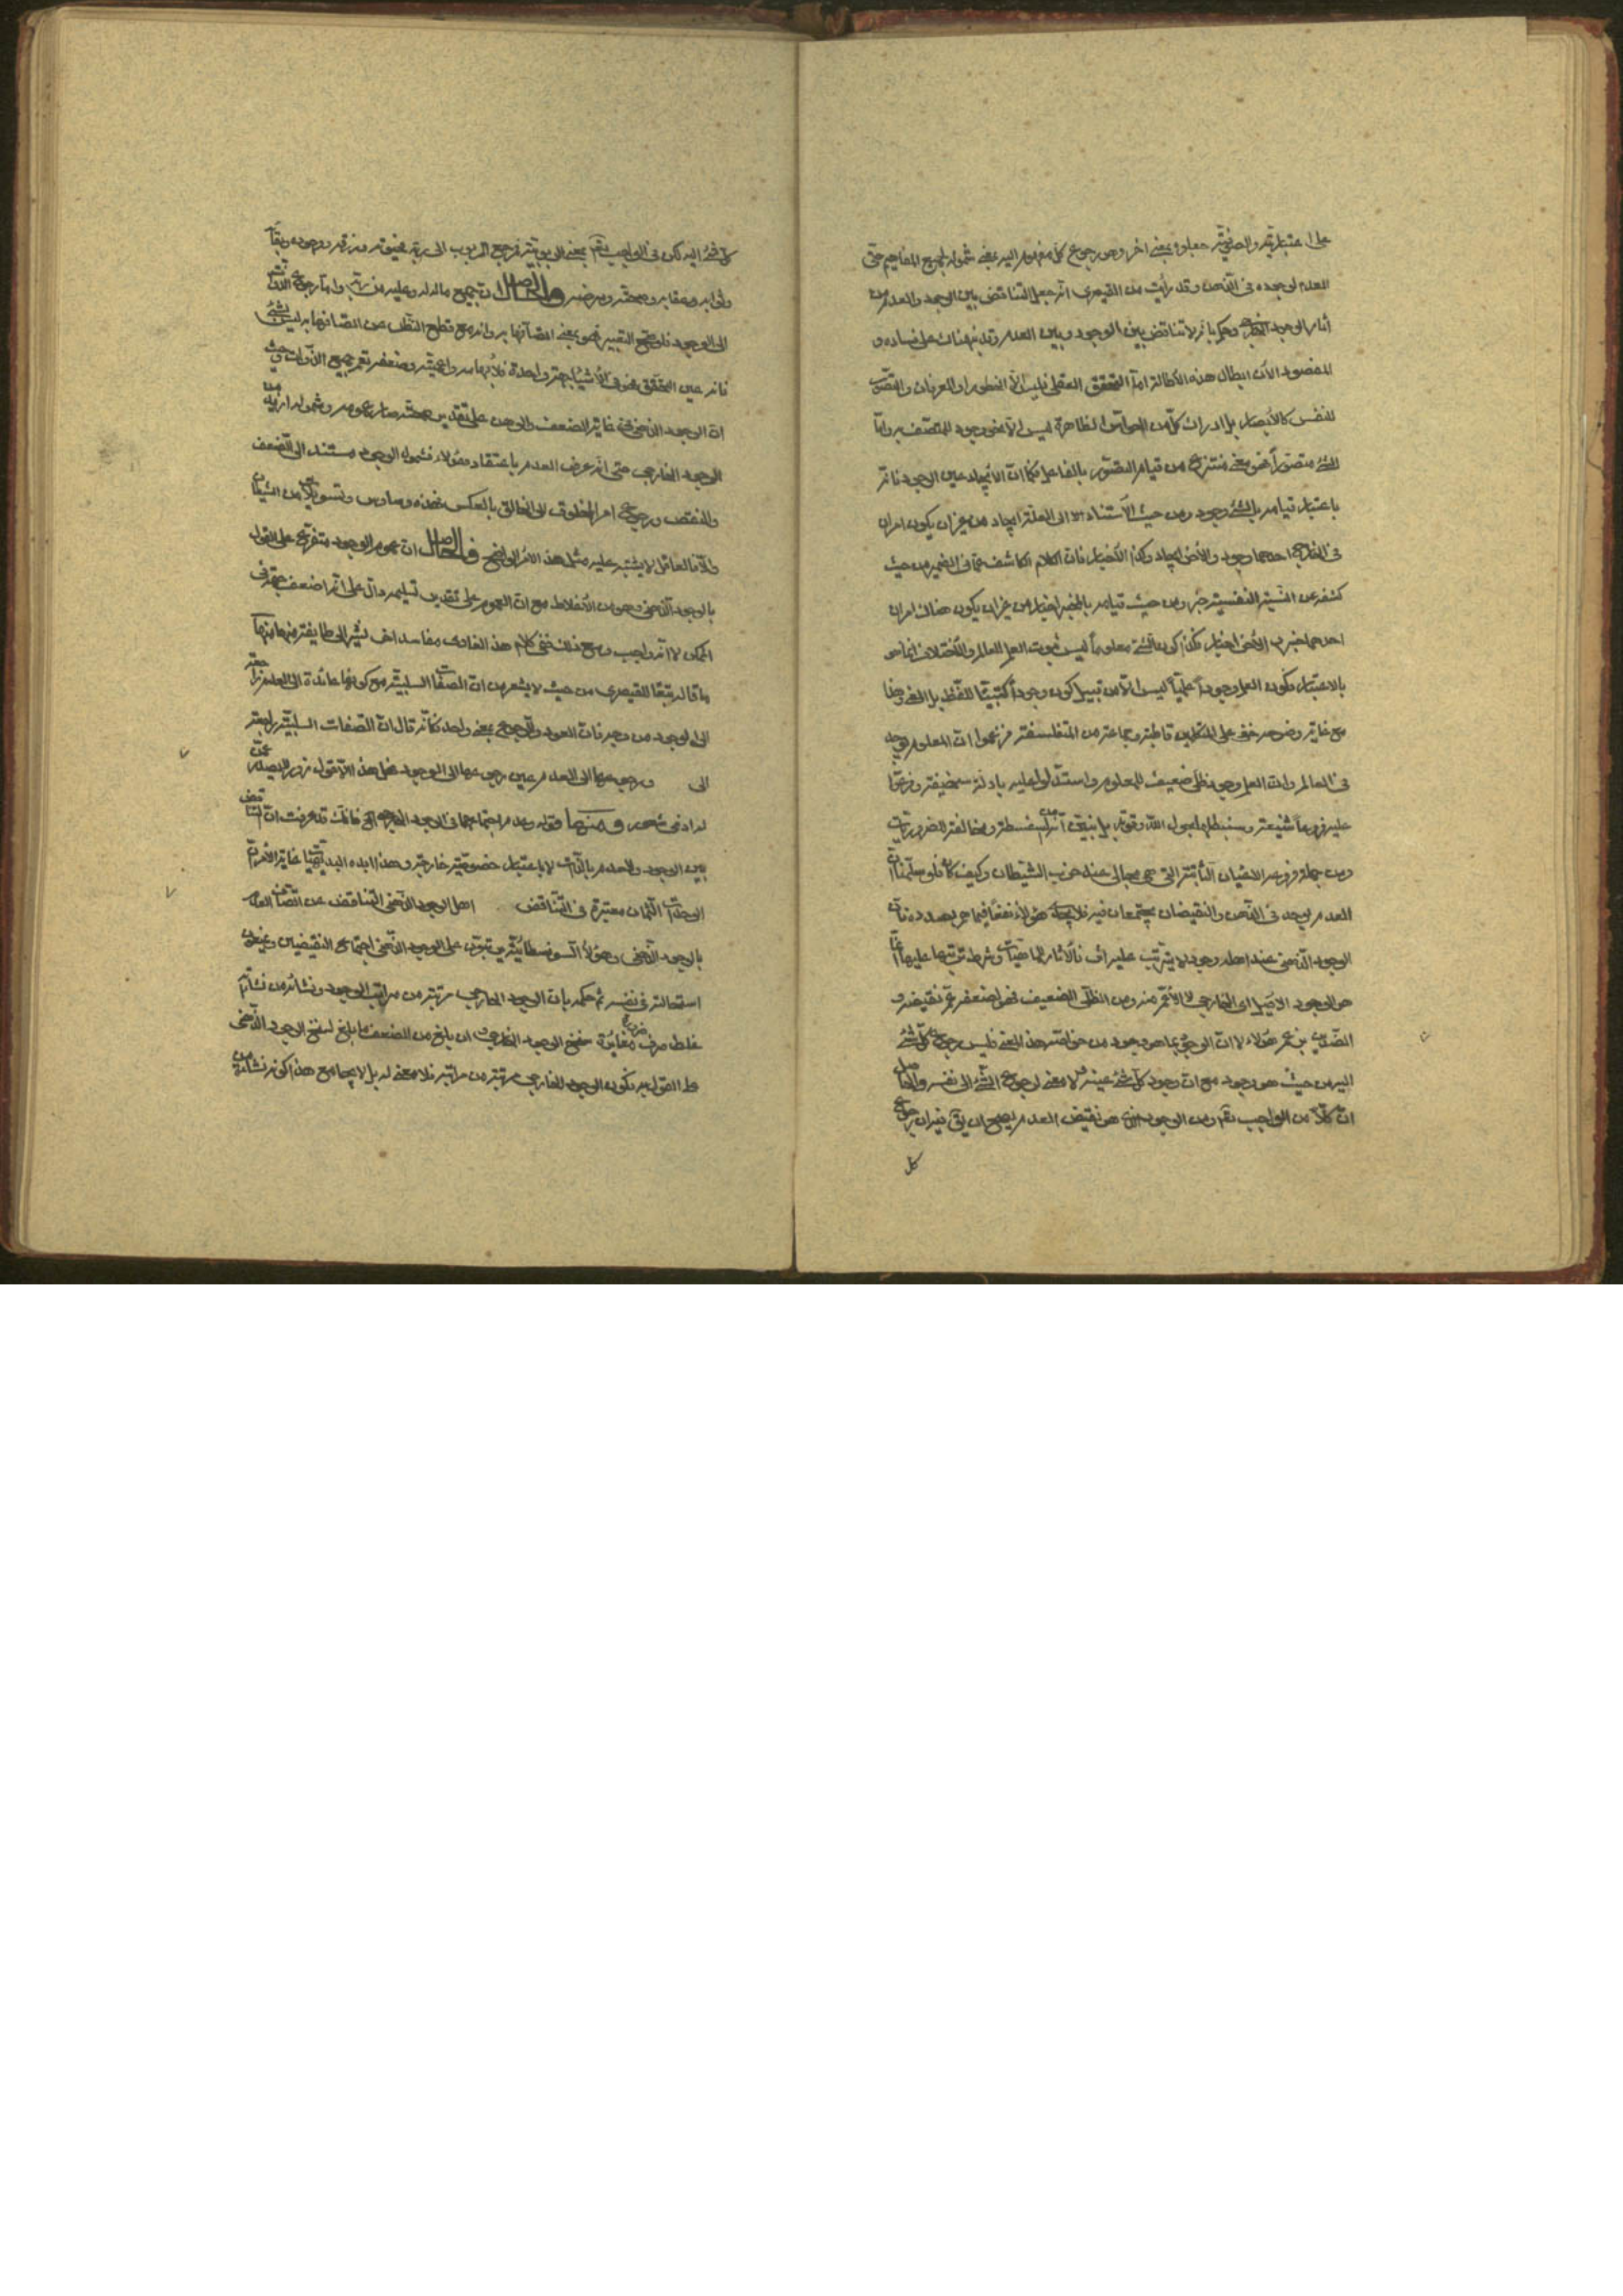 على اعتباريته والصوفية جعلوه بمعنى اخر وهو رجوع كل مفهوم اليه بمعنى شموله لجميع المفاهيم حتى
العدم لوجوده فى الذهن وقد رأيت من القيصرى انه جعل التناقض بين الوجود والعدم من
آثار الوجود الخارجى وحكم بانه لا تناقض بين الوجود وبين العدم وقد نبه هناك على فساده و
المقصود الآن ابطال هذه الاطالة اما التحقق العقلى فليس الا الظهور او العرفان والتصور
للنفس كالأبصار بل ادراك كل من الحواس الظاهرة ليس الا نحو وجود للمتصف به واما
الشئ متصوراً فهو معنى منتزع من قيام التصور بالفاعل فكما ان الايجاد عين الوجود فانه
باعتبار قيامه بالشئ وجود ومن حيث الاستناد الى العلة ايجاد من غير ان يكون امران
فى الخارج احدهما وجود والاخر ايجاد وكذا الاخبار فان الكلام الكاشف عما فى الضمير من حيث
كشفه عن النسبة النفسية خبر ومن حيث قيامه بالمخبر اخبار من غير ان يكون هناك امران
احدهما خبر و الاخر اخبار فكذا كون الشئ معلوماً ليس ثبوت العلم للعالم والاختلاف انما هو
بالاعتبار فكون العلم وجوداً علمياً ليس الا من قبيل كون وجوداً كتبياً للفظ بل المعنى وهذا
مع غاية وضوحه خفى على المتكلمين قاطبة وجماعة من المتفلسفة فزعموا ان المعلوم يوجد
فى العالم وان العلم وجود ظلى ضعيف للمعلوم واستدلوا عليه بادلة سخيفة وفرعوا
عليه فروعاً شنيعة وسنبطلها بحول الله وقوته بل نبين انه سفسطة ومخالفة للضروريات
ومن جملة فروعه الاعيان الثابتة التى هى مجالى عند حزب الشيطان وكيف كان فلو سلمنا ان
العدم يوجد فى الذهن والنقيضان يجتمعان فيه فلا يجدى هؤلاء نفعاً فيما هو بصدده فان
الوجود الذهنى عند اهله وجود لا يترتب عليه اثر فالآثار للماهيات وشرط ترتبها عليها انما
هو الوجود الاصيل اى الخارجى لا الاعم منه ومن الظلى الضعيف فهو لضعفه عم نقيضه و
الضدين بزعم هؤلاء لا ان الوجود بما هو وجود من خواصه هذا المعنى فليس رجوع كل شئ
اليه من حيث هو وجود مع ان وجود كل شئ عينه فلا معنى لرجوع الشئ الى نفسه والحاصل
ان كلاً من الواجب تعالى ومن الوجود الذى هو نقيض العدم يصح ان يقال فيه ان رجوع
كل
كل شئ اليه لكن فى الواجب تعالى بمعنى الربوبية فرجع المربوب الى ربه فخلقه ورزقه ووجوده وبقاؤه
وثوابه وعقابه وصحته ومرضه والحاصل ان جميع ما له له وعليه من ربه واما رجوع الاشياء
الى الوجود فلو صح التعبير فهو بمعنى اتصافها به وانه مع قطع النظر عن اتصافها به ليس بشئ
فانه عين التحقق فهو فى الاشياء جهة واحدة
ان الوجود الذهنى فى غاية الضعف والوهن على تقدير صحته صار عمومه وشموله ازيد من
الوجود الخارجى حتى انه عرض العدم باعتقاد هؤلاء فشمول الوجود مستند الى الضعف
والنقص ورجوع امر المخلوق الى الخالق بالعكس فهذه وساوس وتسويلات من الشيطان
والا فالعاقل لا يشتبه عليه مثل هذا الامر الواضح فالحاصل ان عموم الوجود متفرع على القول
بالوجود الذهنى وهو من الاغلاط مع ان العموم على تقدير تسليمه دال على انه اضعف جهة فى
الممكن لا انه واجب ومع ذلك ففى كلام هذا الغاوى مفاسد اخر نشير الى طايفة منها منها
ما قاله تبعا للقيصرى من حيث لا يشعر من ان الصفات السلبية مع كونها عائدة الى العدم راجعة
الى الوجود من وجه فان العود والرجوع بمعنى واحد فكأنه قال ان الصفات السلبية راجعة
الى ورجوعها الى العدم عين رجوعها الى الوجود فهل هذا الا قول زور لا يصدر عمن
له ادنى شعور ومنها قوله وعدم اجتماعهما فى الوجود الخارجى الخ فانك قد عرفت ان التناقض
بين الوجود والعدم بالذات لا باعتبار خصوصية خارجية وهذا ابده البديهيات غاية الامر ان
الوحدات الثمان معتبرة فى التناقض اهل الوجود الذهنى التناقض عن اتصاف العدم
بالوجود الذهنى وهؤلاء السوفسطائية يرتبون على الوجود الذهنى اجتماع النقيضين ويمنعون
استحالته فى نفسه ثم حكمه بان الوجود الخارجى مرتبة من مراتب الوجود ونشأة من نشآته
غلط صرف ضرورة مغايرة سنخ الوجود الخارجى وان بلغ من الضعف ما بلغ لسنخ الوجود الذهنى
على القول به فكون الوجود الخارجى مرتبة من مراتبه فلا معنى له بل لا يجامع هذا كونه نشأة من